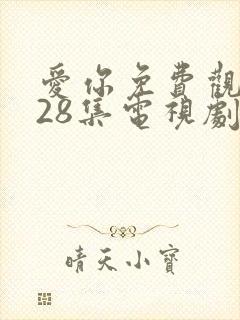 愛你免費觀
28集電視劇
晴天小寶